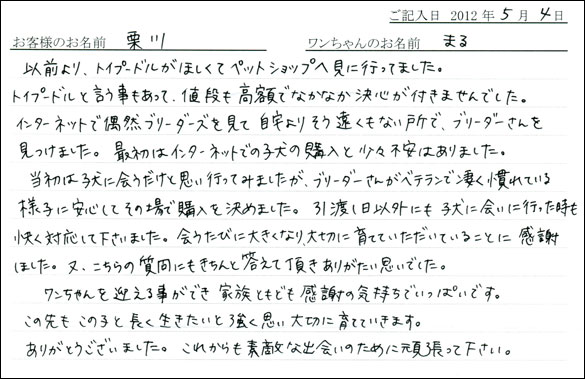 ご記入日 2012 年 5 月 4 日
お客様のお名前 栗川 ワンちゃんのお名前 まる
以前より、トイプードルがほしくてペットショップへ見に行ってました。
トイプードルと言う事もあって、値段も高額でなかなか決心が付きませんでした。
インターネットで偶然ブリーダーズを見て自宅よりそう遠くもない所で、ブリーダーさんを
見つけました。最初はインターネットでの子犬の購入と少々不安はありました。
当初は子犬に会うだけと思い行ってみましたが、ブリーダーさんがベテランで凄く慣れている
様子に安心してその場で購入を決めました。引渡し日以外にも子犬に会いに行った時も
快く対応して下さいました。会うたびに大きくなり、大切に育てていただいていることに感謝
しました。又、こちらの質問にもきちんと答えて頂きありがたい思いでした。
ワンちゃんを迎える事ができ家族ともども感謝の気持ちでいっぱいです。
この先もこの子と長く生きたいと強く思い大切に育てていきます。
ありがとうございました。これからも素敵な出会いのために頑張って下さい。